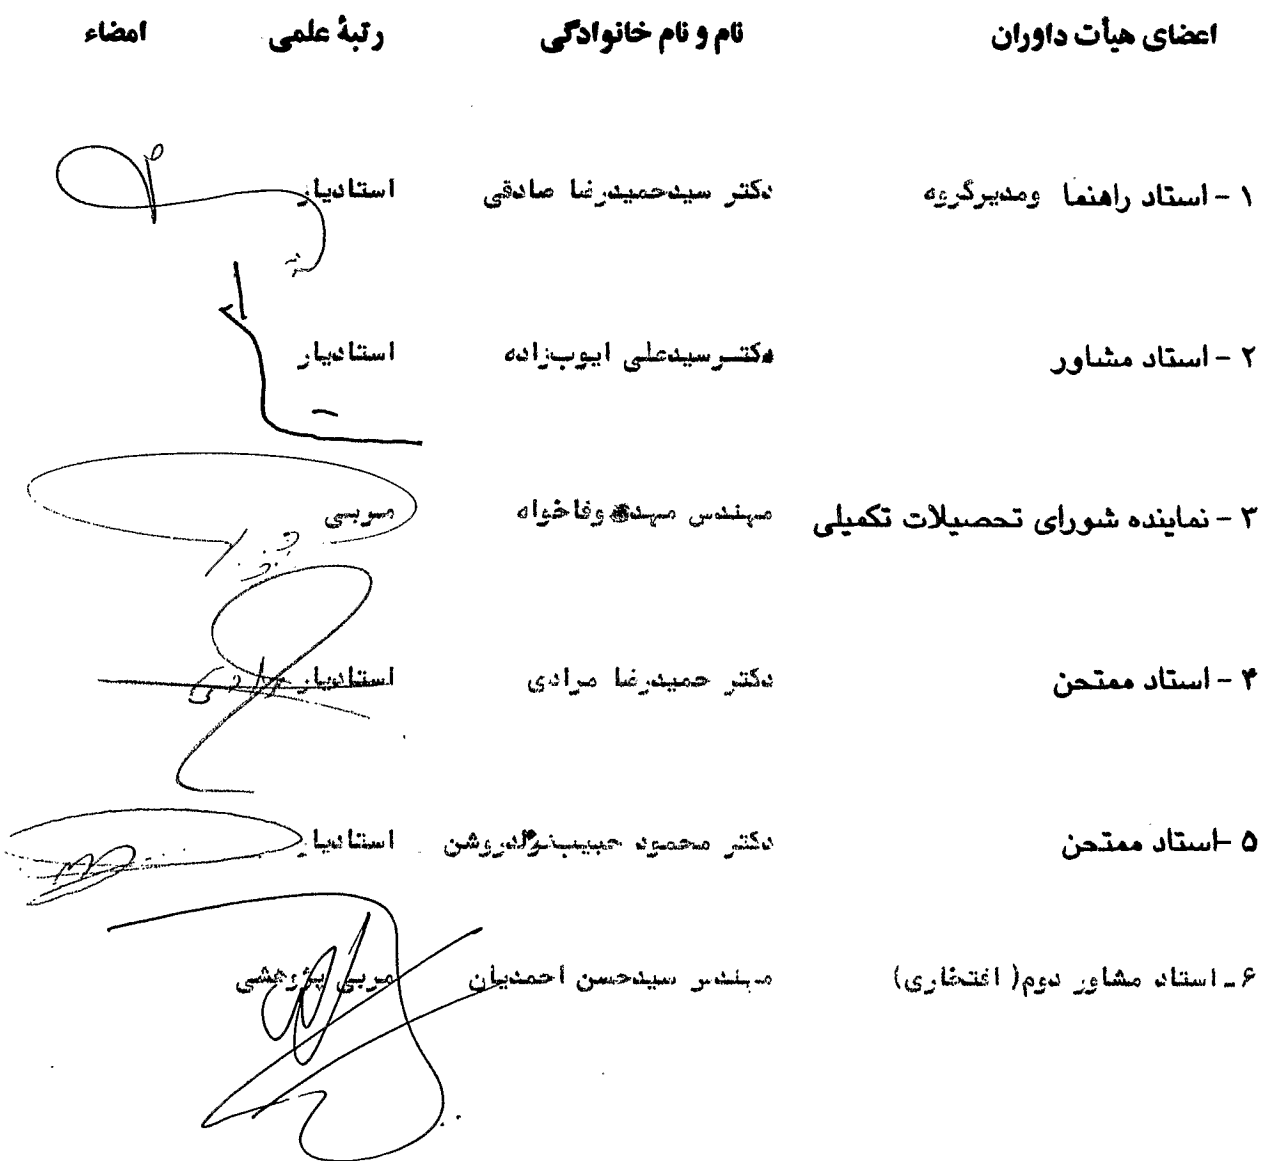 اعضای هیأت داوران نام و نام خانوادگی رتبهٔ علمی امضاء
۱ - استاد راهنما ومدیرگروه دکتر سیدحمیدرضا صادقی استادیار
۲ - استاد مشاور دکتر سیدعلی ایوب‌زاده استادیار
۳ - نماینده شورای تحصیلات تکمیلی مهندس مهدی وفاخواه مربی
۴ - استاد ممتحن دکتر حمیدرضا مرادی استادیار
۵ - استاد ممتحن دکتر محمود استادیار
۶ - استاد مشاور دوم( افتخاری) مهندس سیدحسن احمدیان مربی پژوهشی